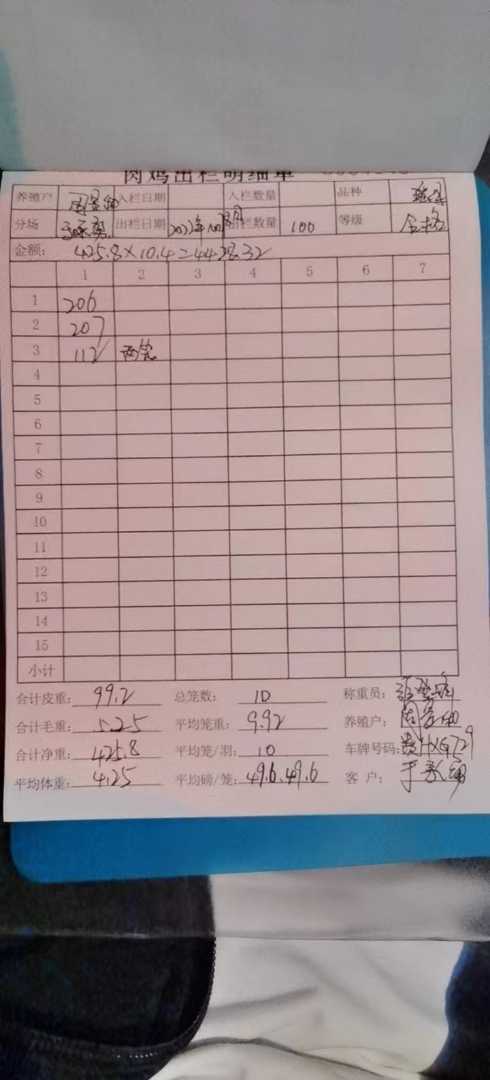 肉鸡出栏明细单
养殖户 入栏日期 入栏数量 品种
分场 出栏日期 2022年 出栏数量 100 等级 合格
金额: 425.8×10.4=4428.32
1 2 3 4 5 6 7
1 206
2 207
3 112 两笼
4
5
6
7
8
9
10
11
12
13
14
15
小计
合计皮重: 99.2 总笼数: 10 称重员:
合计毛重: 525 平均笼重: 9.92 养殖户:
合计净重: 425.8 平均笼/羽: 10 车牌号码:
平均体重: 4.25 平均磅/笼: 49.6.49.6 客户: